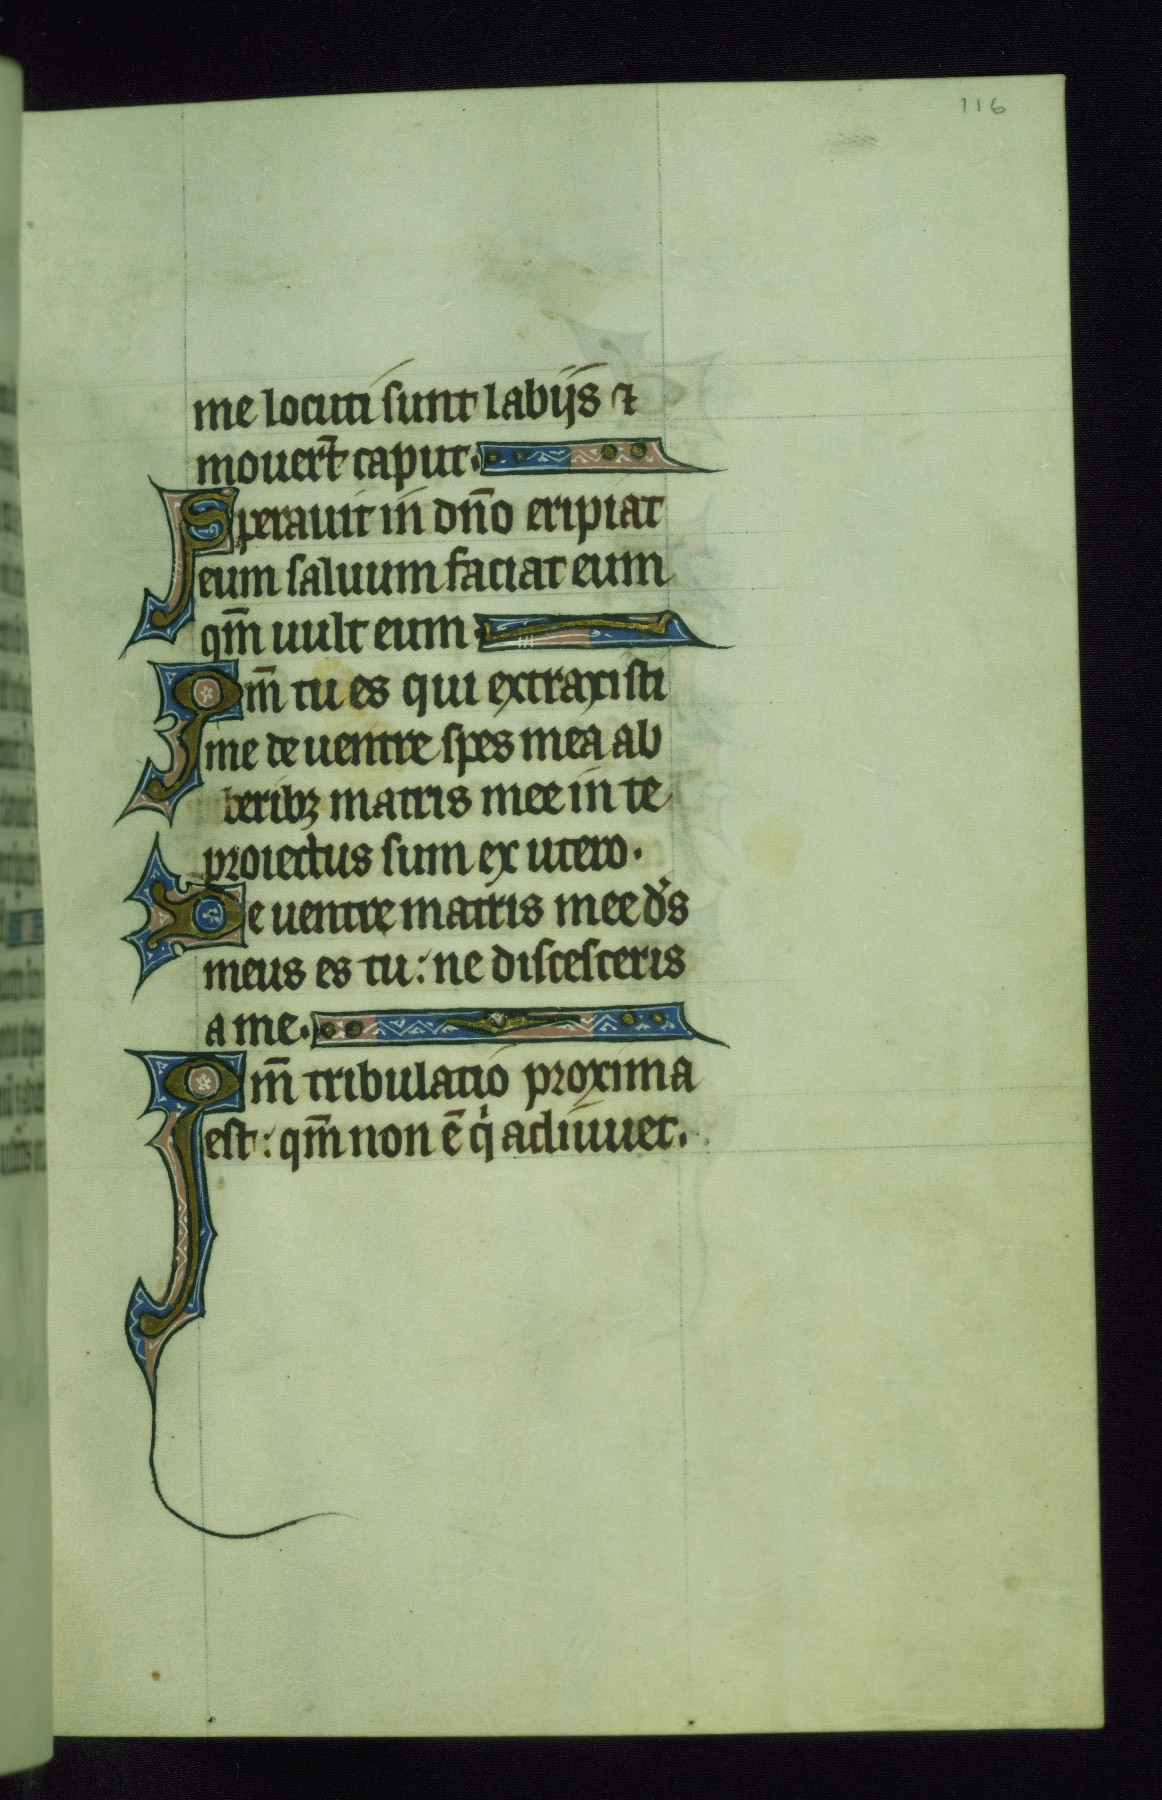 116
me locuti sunt labijs ⁊
mouer̄t caput.
Sperauit in dn̄o eripiat
eum saluum faciat eum
qm̄ uult eum
Qm̄ tu es qui extraxisti
me de uentre spes mea ab
beribꝫ matris mee in te
proiectus sum ex utero.
De uentre matris mee ds̄
meus es tu: ne discesceris
a me.
Qm̄ tribulatio proxima
est: qm̄ non ē qͥ adiuuet.